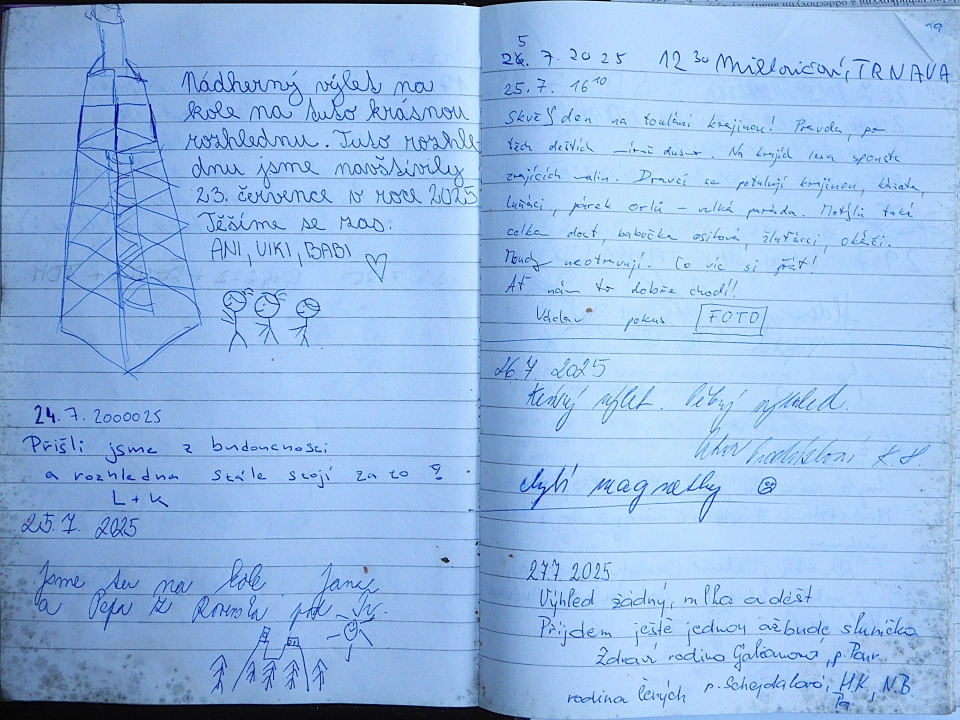 Nádherný výlet na
kole na tuto krásnou
rozhlednu. Tuto rozhle-
dnu jsme navšťívily
23. července v roce 2025
Těšíme se zas:
ANI, VIKI, BABI
24.7.2000025
Přišli jsme z budoucnosti
a rozhledna stále stojí za to ?
L + K
25.7. 2025
Jsme tu na kole Jana
a Pepa z Rovenska pod Tr.
19
5
24. 7. 2025 12 30 TRNAVA
25.7. 16 10
Skvělý den na toulání krajinou! Pravda, po
těch deštích mírně dusno. Na krajích lesa spousta
zrajících malin. Dravci se potulují krajinou, káňata,
luňáci, párek orlů – velká paráda. Motýlů také
celkem dost, babočka osiková, žluťásci, okáči.
neotravují. Co víc si přát!
Ať nám to dobře chodí!
Václav pokus FOTO
26.7. 2025
výlet. Pěkný výhled.
chybí magnetky
27.7.2025
Výhled žádný, mlha a déšť
Přijdem ještě jednou až bude sluníčko
Zdraví rodina p.
rodina p. Schejbalová, HK, NB